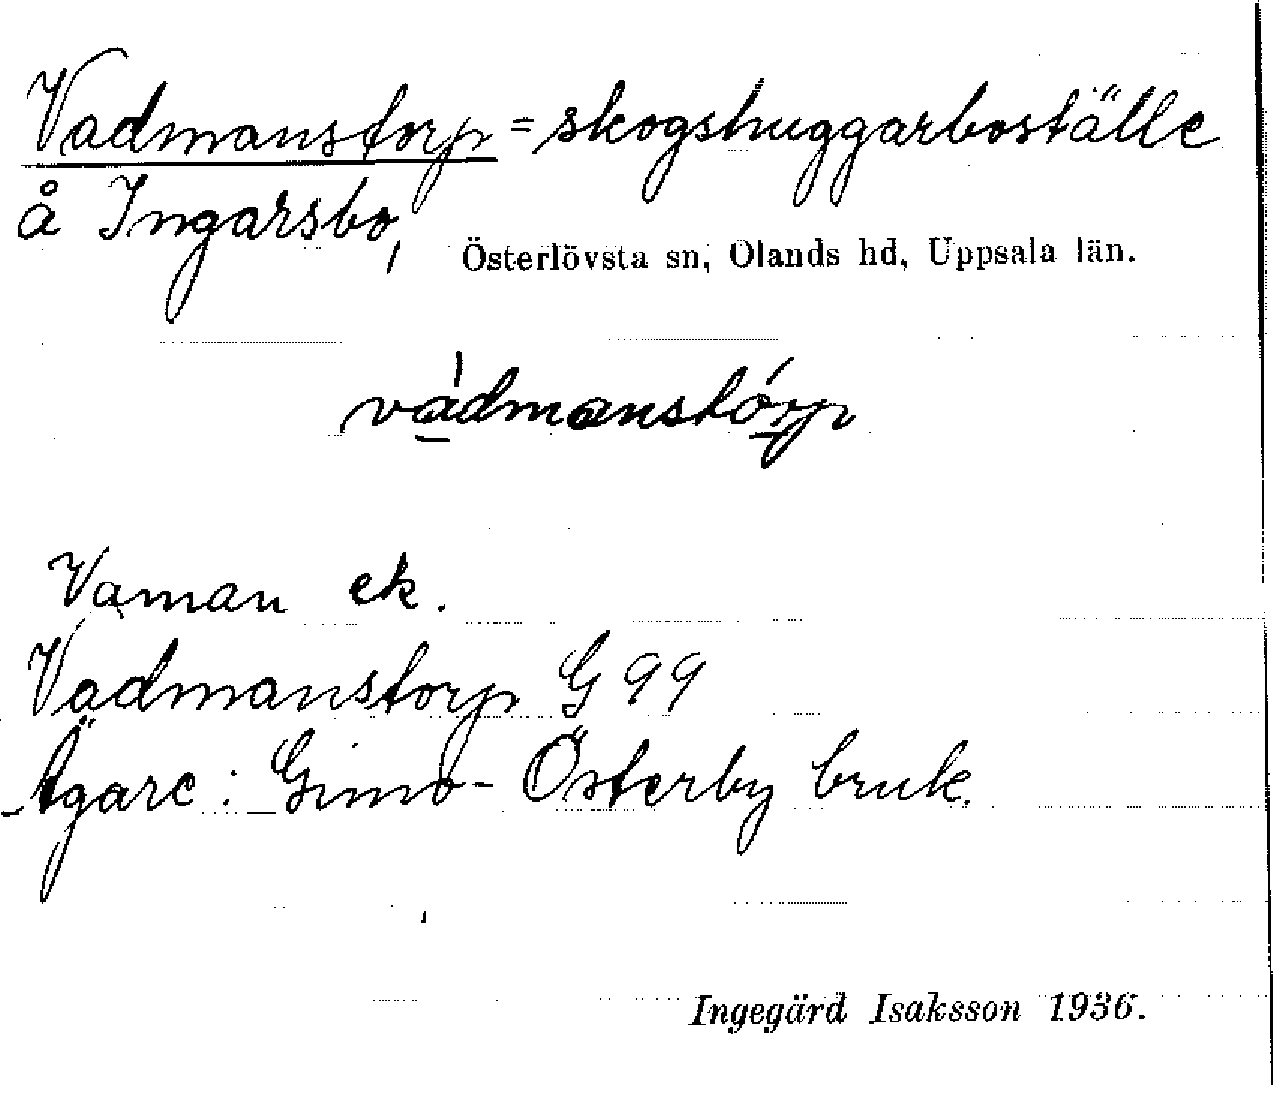 Vadmanstorp = skogshuggarboställe
å Ingarsbo, Österlövsta sn, Olands hd, Uppsala län.
vádmanstórp
Vaman ek.
Vadmanstorp G 99
Ägare: Gimo-Österby bruk.
Ingegärd Isaksson 1936.